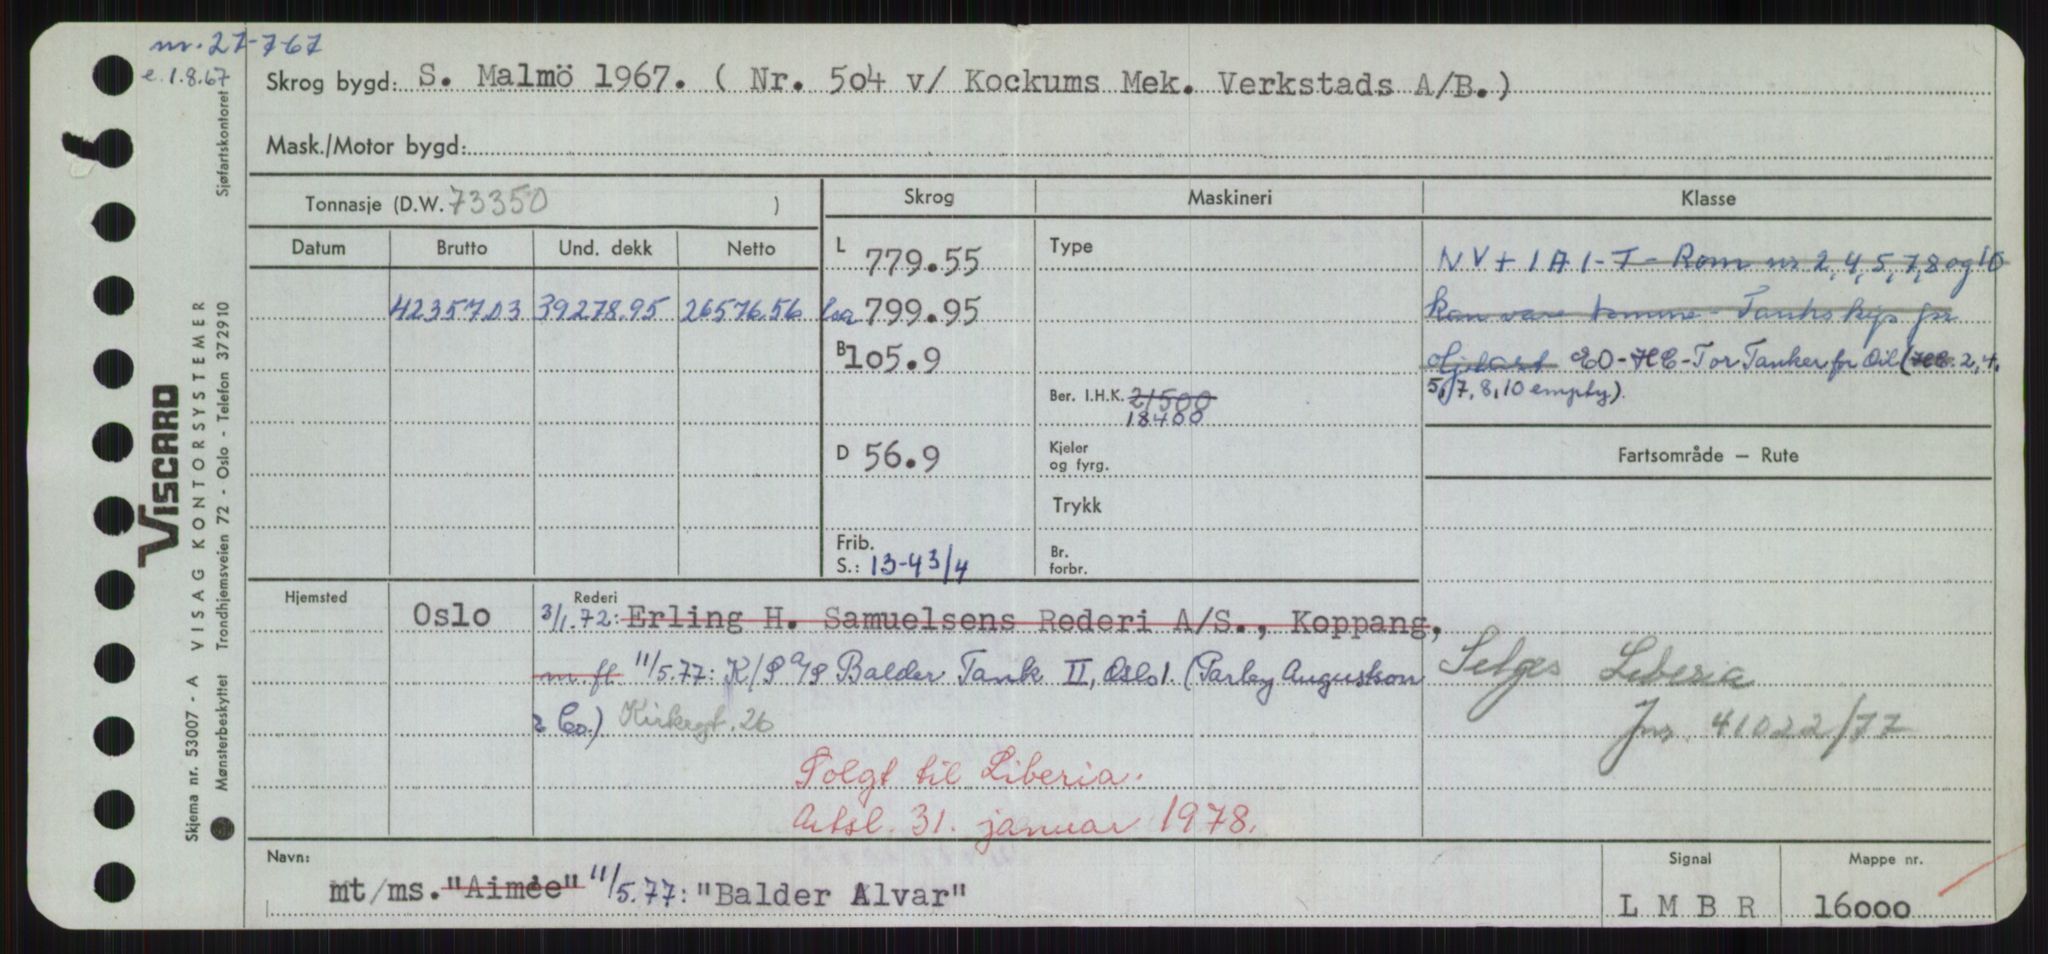 nr. 27-7-67
e. 1.8.67
Skrog bygd: S. Malmö 1967. ( Nr. 504 v/ Kockums Mek. Verkstads A/B.)
Mask./Motor bygd:
Tonnasje (D.W. 73350 )
Skrog Maskineri Klasse
Datum Brutto Und. dekk Netto
L 779.55
Type
NV + 1A1-T- Rom nr 2,4,5,7,8 og 10
42357.03 39278.95 26576.56
loa 799.95
kan være tomme - Tankskip for
B 105.9
oljelast EO-HC-T or Tanker for Oil ( 2, 4.
5, 7, 8, 10 empty).
Ber. I.H.K. 21500
18400
D 56.9
Kjeler
og fyrg.
Fartsområde — Rute
Trykk
Frib.
S.: 13-4 3/4
Br.
forbr.
Hjemsted
Oslo
Rederi
3/1.72: Erling H. Samuelsens Rederi A/S., Koppang,
m.fl 11/5.77: K/S A/S Balder Tank II, Oslo 1. (Parley Augustson
& Co.) Kirkegt. 26
Selges Liberia
Jnr. 41022/77
Solgt til Liberia.
Avtsl. 31. januar 1978.
Navn:
mt/ms. "Aimée" 11/5.77: "Balder Alvar"
Signal
L M B R
Mappe nr.
16000
VISCARD
VISAG KONTORSYSTEMER
Skjema nr. 53007 - A
Mønsterbeskyttet Trondhjemsveien 72 - Oslo - Telefon 37 29 10
Sjøfartskontoret